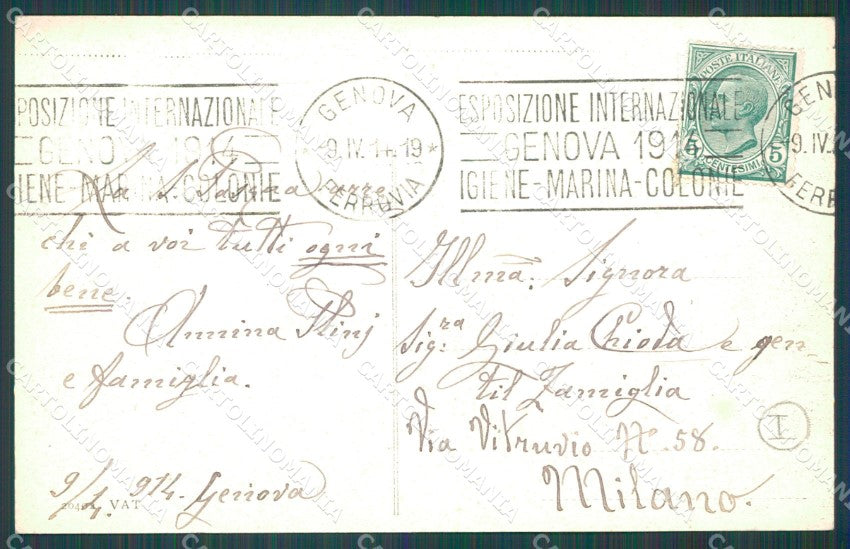 POSIZIONE INTERNAZIONALE
GENOVA 1914
IGIENE-MARINA-COLONIE
GENOVA
9.IV.14 19
FERROVIA
ESPOSIZIONE INTERNAZIONALE
GENOVA 1914
IGIENE-MARINA-COLONIE
POSTE ITALIANE
5 5
CENTESIMI
GENO
19.IV.
FERRO
La S. Pasqua arre-
chi a voi tutti ogni
bene.
Annina
e famiglia.
9/4. 914. Genova
20404 VAT
Illma: Signora
Sigra Giulia Chioda e gen-
til Famiglia
Via Vitruvio No 58.
Milano.
I
CARTOLINOMANIA